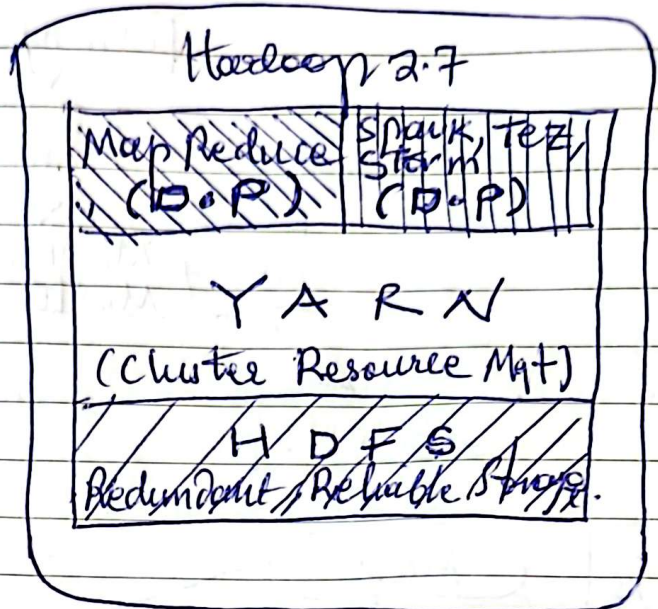 Hadoop 2.7
Map Reduce
(D.P)
Spark, Tez,
Storm
(D.P)
Y A R N
(Cluster Resource Mgt)
H D F S
Redundant, Reliable Storage.